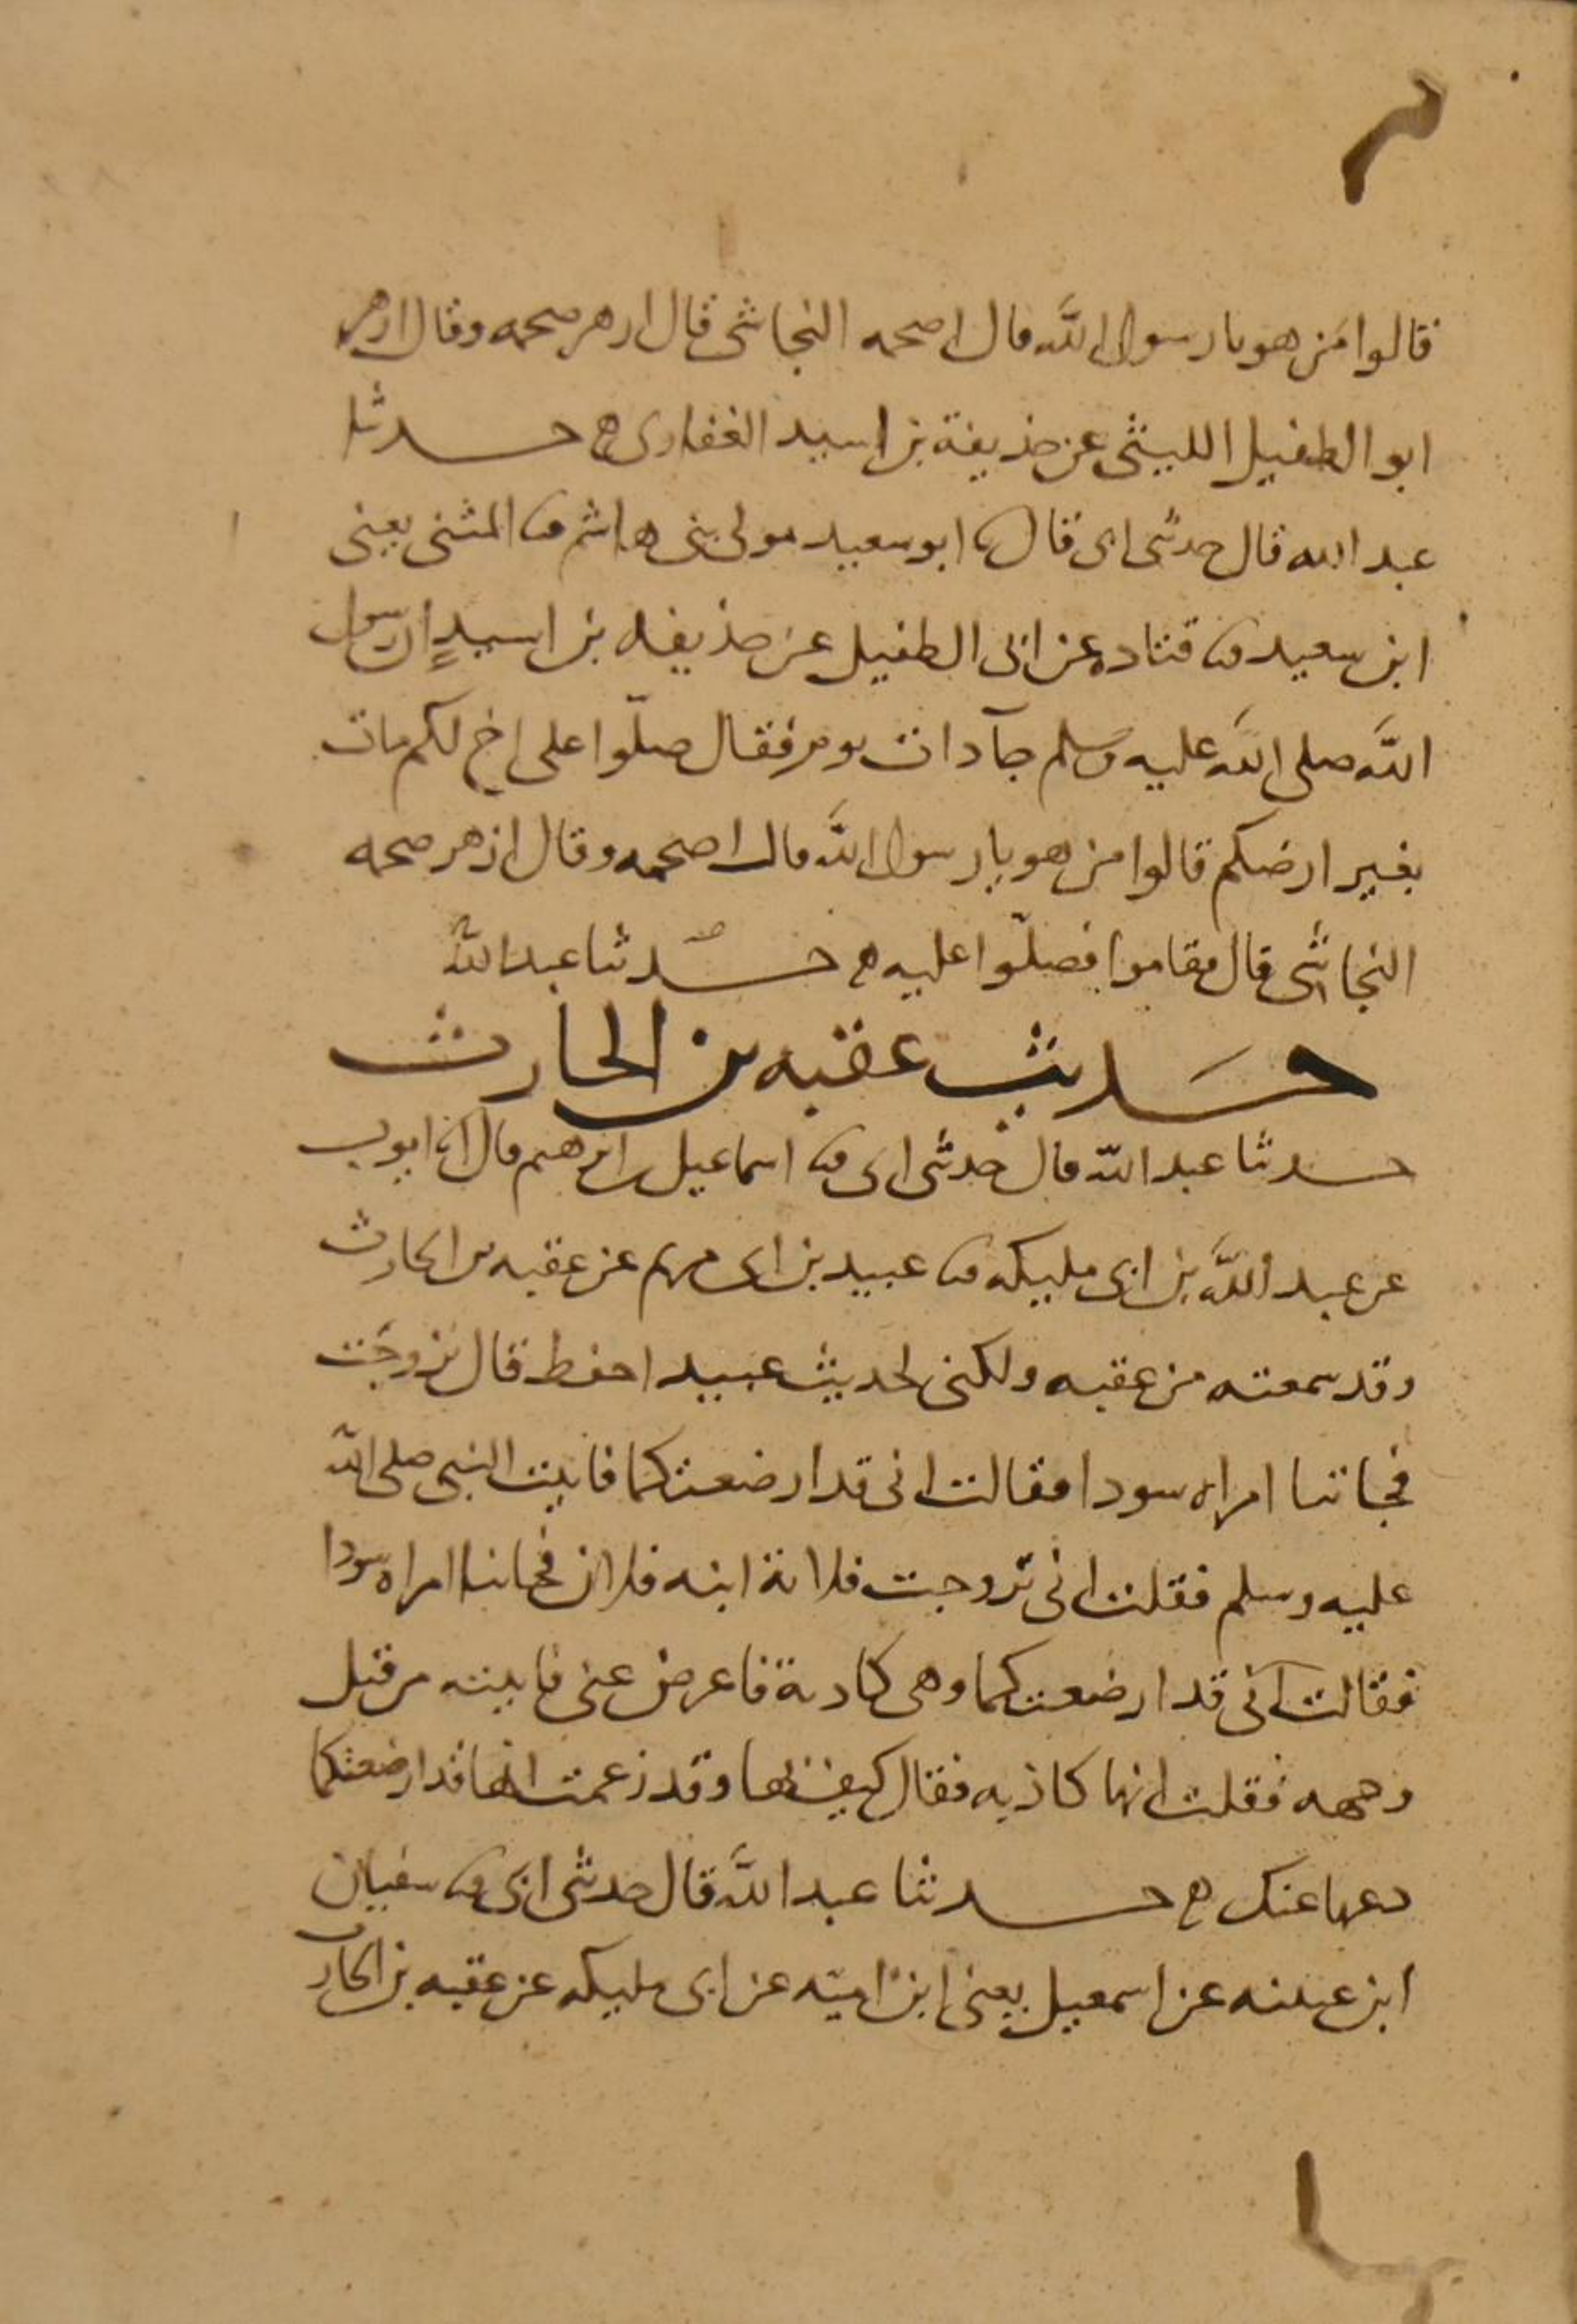 قالوا من هو يا رسول الله قال اصحمه النجاشى قال ازهر صحمه وقال ازهر
ابو الطفيل الليثى عن حذيفة بن اسيد الغفارى ه حدثنا
عبد الله قال حدثنى ابى قال ثنا ابو سعيد مولى بنى هاشم ثنا المثنى يعنى
ابن سعيد ثنا قتاده عن ابى الطفيل عن حذيفه بن اسيدٍ ان رسول
الله صلى الله عليه وسلم جآ ذات يوم فقال صلّوا على اخ لكم مات
بغير ارضكم قالوا من هو يا رسول الله قال اصحمه وقال ازهر صحمه
النجاشى قال فقاموا فصلّوا عليه ه حدثنا عبد الله
حديث عقبه بن الحارث
حدثنا عبد الله قال حدثنى ابى ثنا اسماعيل بن ابرهيم قال انا ايوب
عن عبد الله بن ابى مليكه ثنا عبيد بن ابى مريم عن عقبه بن الحارث
وقد سمعته من عقبه ولكنى لحديث عبيد احفظ قال تزوجت
فجاتنا امراه سودا فقالت انى قد ارضعتكما فاتيت النبى صلى الله
عليه وسلم فقلت انى تزوجت فلانة ابنه فلان فجاتنا امراه سودا
فقالت انى قد ارضعتكما وهى كاذبة فاعرض عنى فاتيته من قبل
وجهه فقلت انها كاذبه فقال كيف بها وقد زعمت انها قد ارضعتكما
دعها عنك ه حدثنا عبد الله قال حدثنى ابى ثنا سفيان
ابن عيينه عن اسمعيل يعنى ابن اميّه عن ابن ابى مليكه عن عقبه بن الحارث